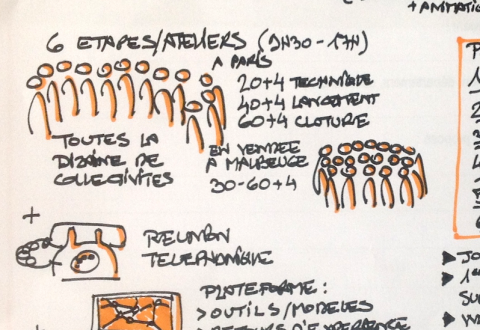 + ANIMATIO
6 ETAPES/ATELIERS (9H30-17H)
A PARIS
20+4 TECHNIQUE
40+4 LANCEMENT
60+4 CLOTURE
TOUTES LA
DIZAINE DE
COLLECTIVITES
EN VENDEE
A MAUBEUGE
30-60+4
+
REUNION
TELEPHONIQUE
PLATEFORME :
> OUTILS/MODELES
> RETOURS D'EXPERIENCE
P
1
2
3
4
6
▶ JO
▶ 1ER
SU